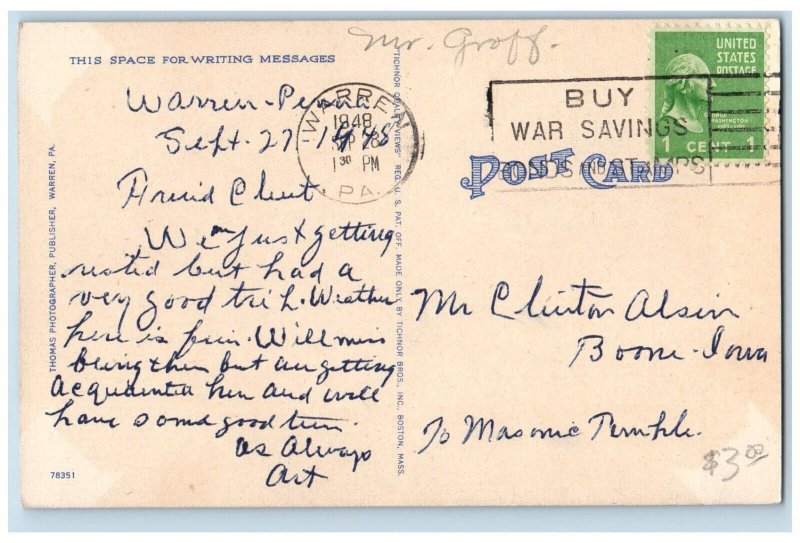 Mr. Groff.
THIS SPACE FOR WRITING MESSAGES
Warren - Penna
Sept. 27, 1948
Friend Clint
We just getting
rested but had a
very good trip. Weather
here is fine. Will miss
being then but am getting
acquainted here and will
have some good time.
As Always
Art
78351
THOMAS PHOTOGRAPHER, PUBLISHER, WARREN, PA.
"TICHNOR QUALITY VIEWS" REG. U. S. PAT. OFF. MADE ONLY BY TICHNOR BROS., INC. BOSTON, MASS.
WARREN
1948
SEP 28
1 30 PM
PA.
BUY
WAR SAVINGS
BONDS AND STAMPS
UNITED
STATES
POSTAGE
GEORGE
WASHINGTON
1 CENT 1
POST CARD
Mr Clinton Alsin
Boone - Iowa
To Masonic Temple.
$3.00